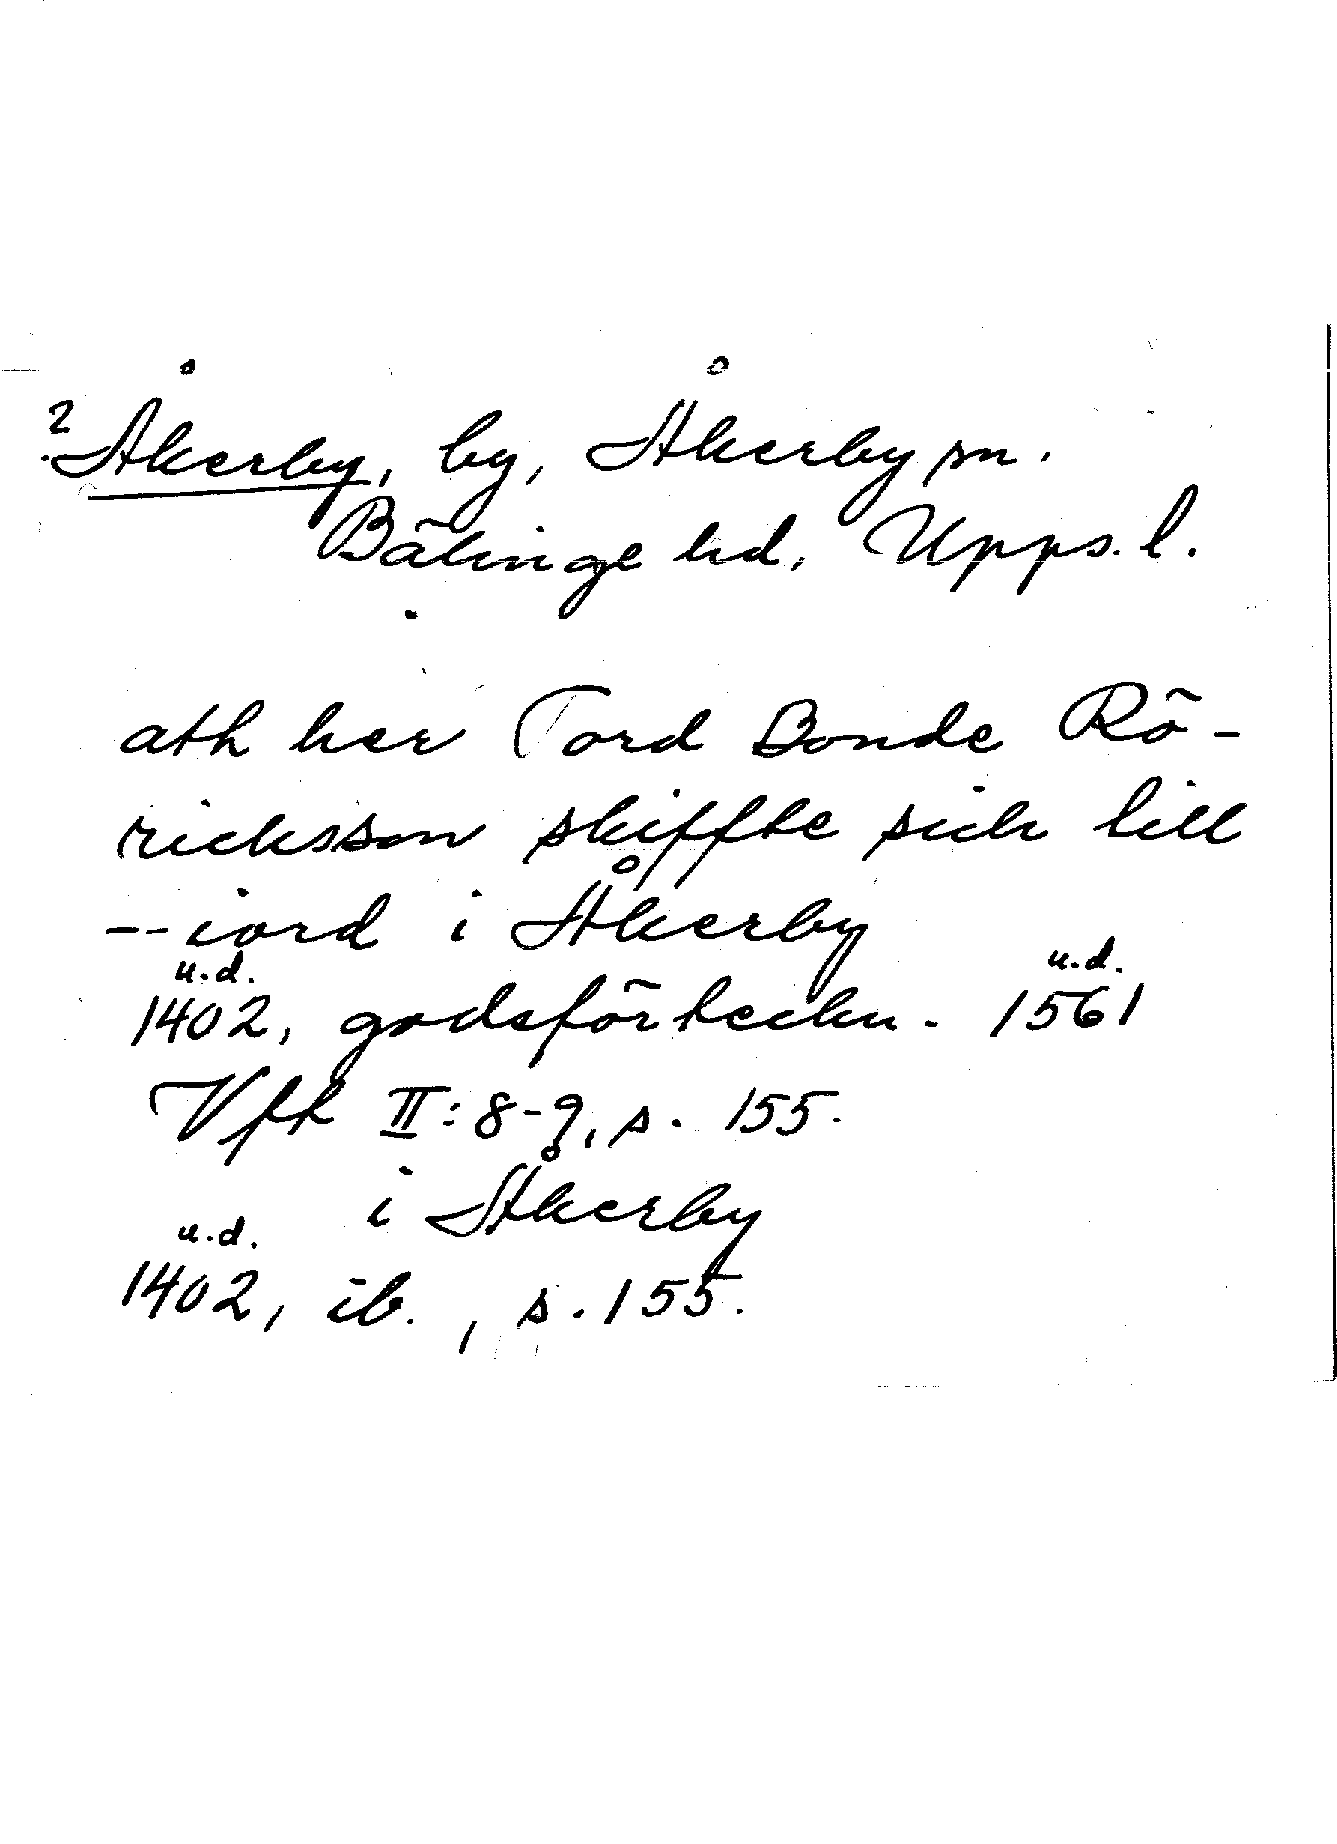 ? Åkerby, by, Åkerby sn.
Bälinge hd, Upps. l.
ath her Tord Bonde Rö-
ricksson skiffte sich till
-- iord i Åkerby
u.d. u.d.
1402, godsförteckn. 1561
Vfh II: 8-9, s. 155.
i Åkerby
u.d.
1402, ib., s. 155.